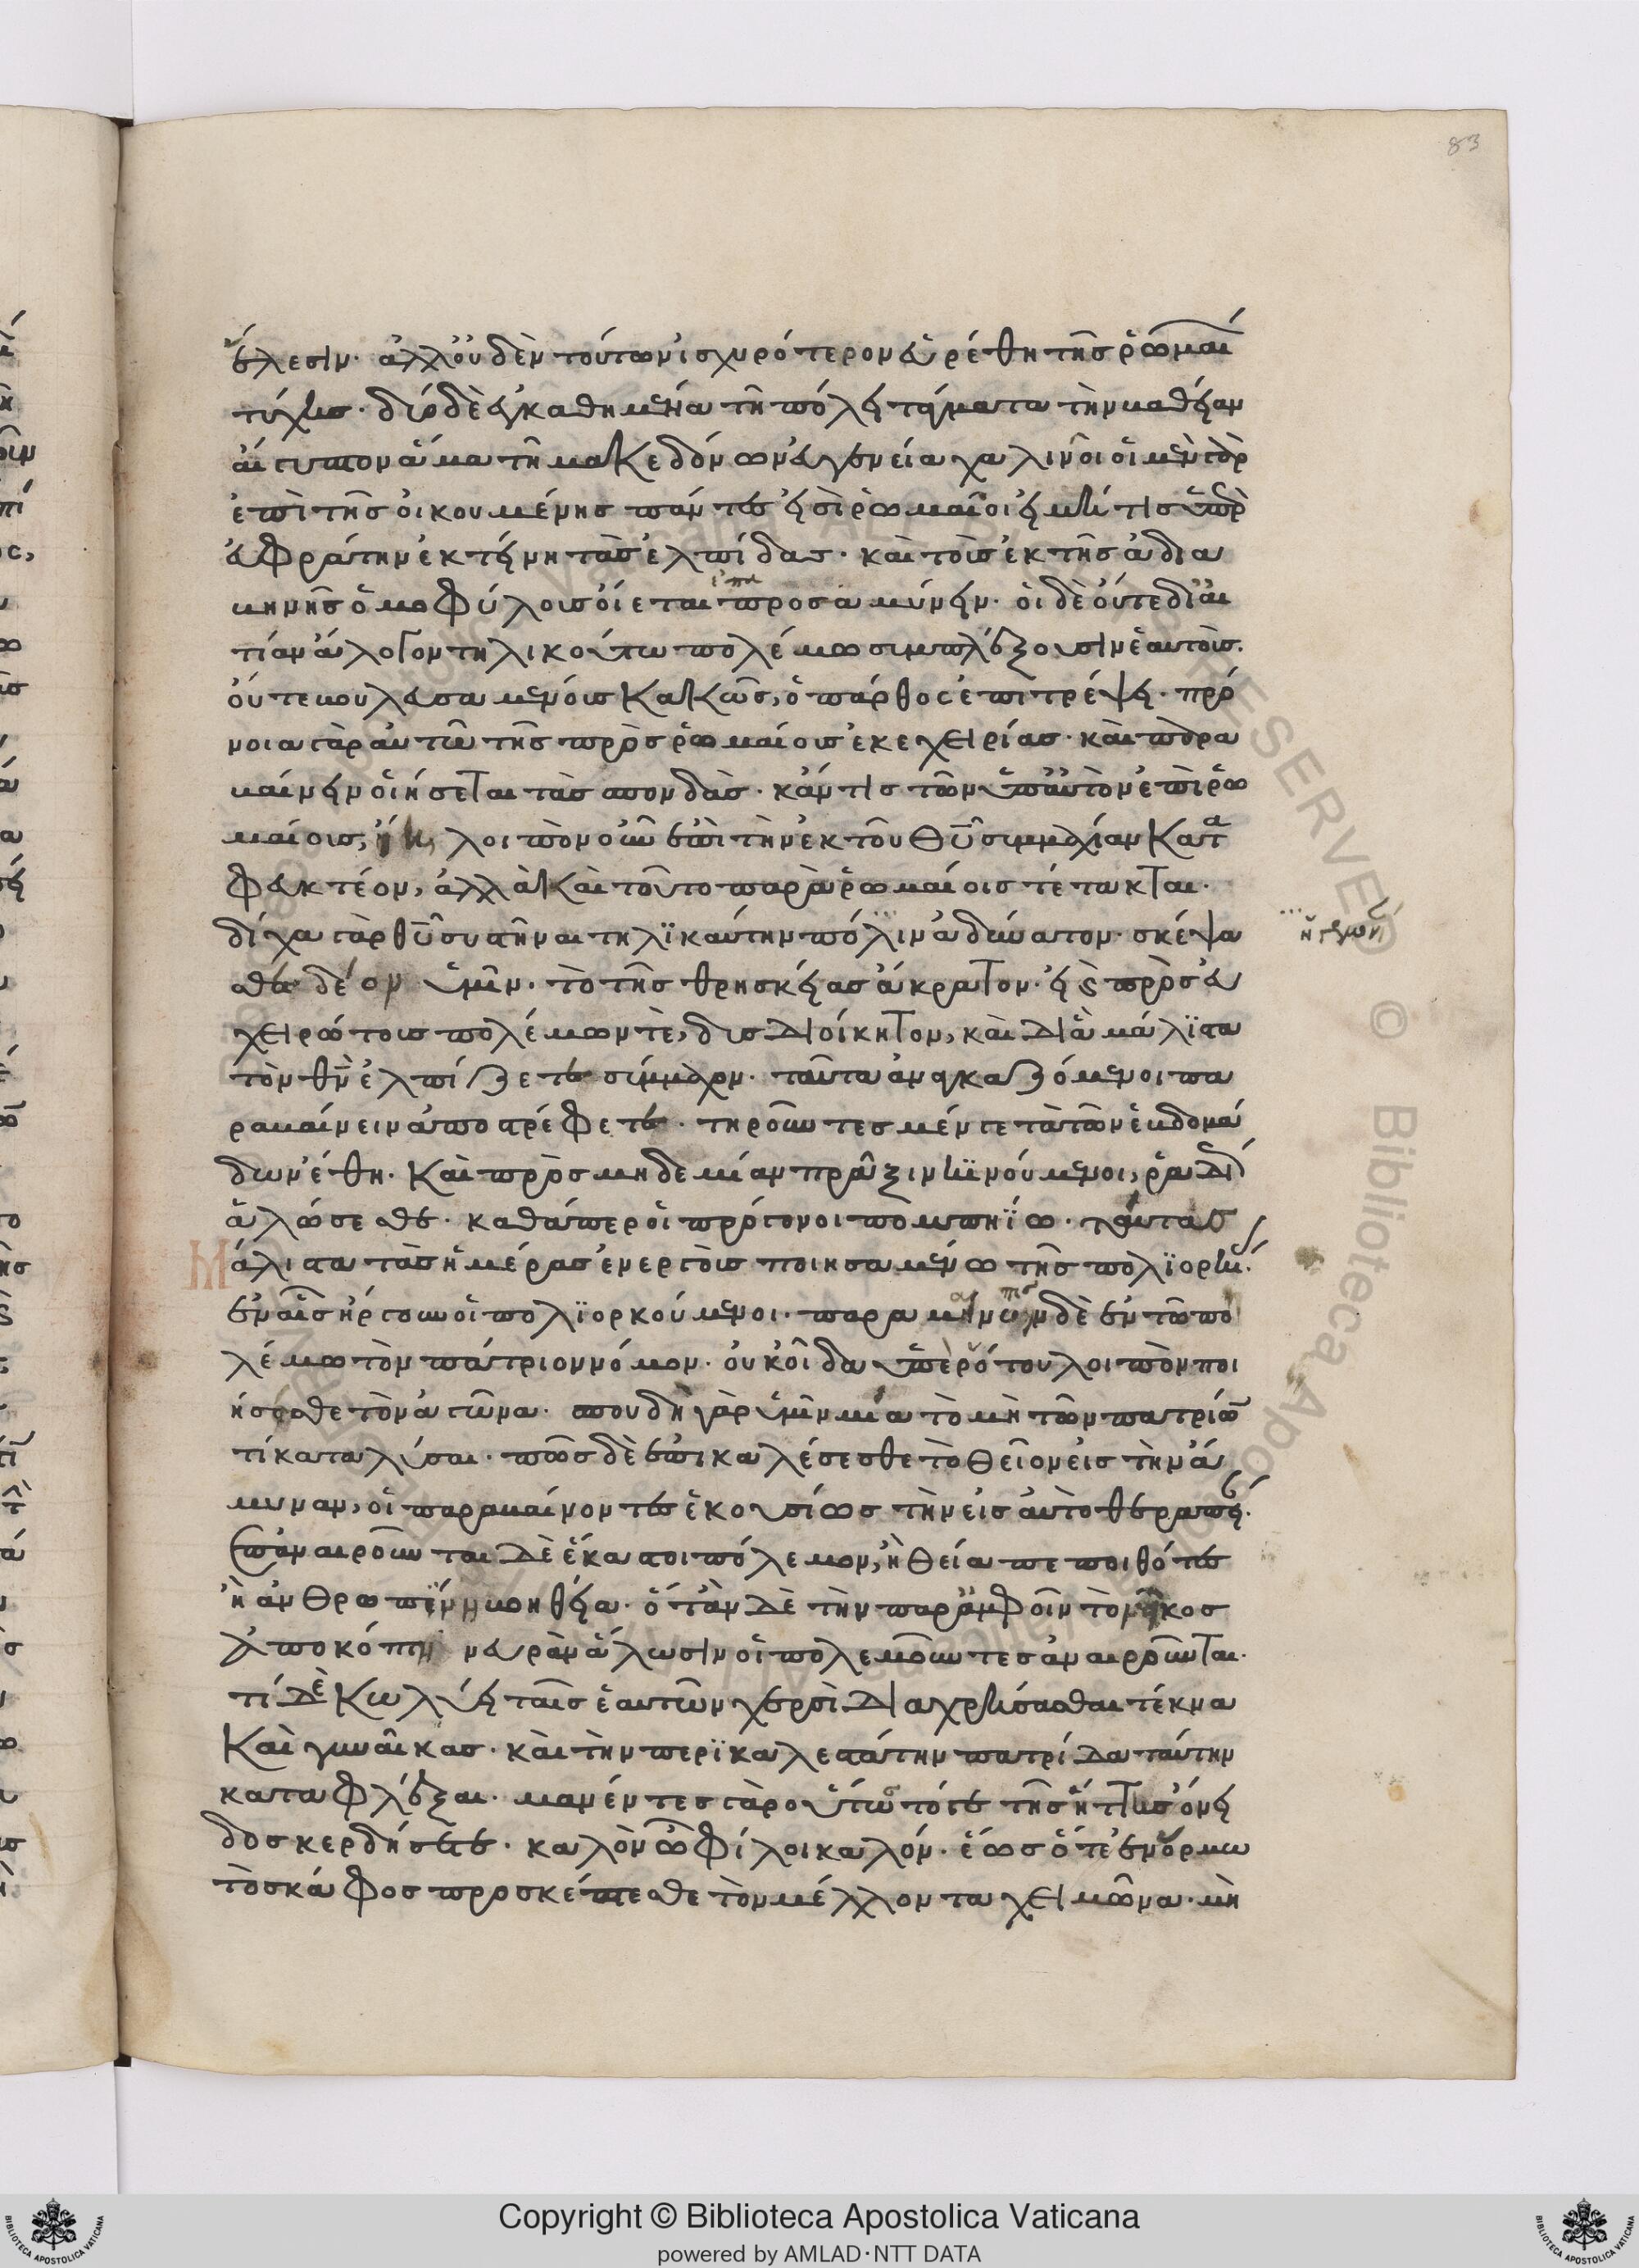 ἕλεσιν· ἀλλ' οὐδὲν τούτων ἰσχυρότερον εὑρέθη τῆς ῥωμαί
τύχης· δύο δὲ ἐγκαθήμενα τῇ πόλει τάγματα τὴν βαθεῖαν
αἴγυπτον ἅμα τῇ μακεδόνων εὐγενεία χαλινοῖ οἱ μὲν γὰρ
ἐπὶ τῆς οἰκουμένης πάντες εἰσὶ ῥωμαῖοι εἰ μή τις ὑπὲρ
εὐφράτην ἐκτείνη τὰς ἐλπίδας· καὶ τοὺς ἐκ τῆς ἀδια
βηνῆς ὁμοφύλους οἴεται προσαμύνειν· οἱ δὲ οὔτε δι' αἰ
τίαν ἄλογον τηλικούτω πολέμω συμπλέξουσιν ἑαυτοὺς·
οὔτε βουλευσαμένοις κακῶς, ὁ πάρθος ἐπιτρέψει· πρό
νοια γὰρ αὐτῶ τῆς πρὸς ῥωμαίους ἐκεχειρίας· καὶ παρα
βαίνειν οἰήσεται τὰς σπονδὰς· κἄν τις τῶν ὑπ' αὐτὸν ἐπὶ ῥω
μαίους, ἴη, λοιπὸν οὖν ἐπὶ τὴν ἐκ τοῦ θῦ συμμαχίαν κατα
φευκτέον, ἀλλὰ καὶ τοῦτο παρὰ ῥωμαίοις τέτακται·
δίχα γὰρ θῦ συστῆναι τηλϊκαύτην πόλιν ἀδύνατον· σκέψα
σθε δὲ ὑμῖν· τὸ τῆς θρησκείας ἄκρατον· εἰ καὶ πρὸς εὐ
χειρώτους πολέμων τὲ, δυσδιοίκητον, καὶ δι' ἃ μάλϊστα
τὸν θν ἐλπίζετε σύμμαχον· ταῦτα ἀναγκαζόμενοι πα
ραβαίνειν ἀποστρέφετε· τηροῦντες μέν γε τὰ τῶν ἑβδομά
δων ἔθη· καὶ πρὸς μηδεμίαν πρᾶξιν κϊνούμενοι, ῥαδί
ἁλώσεσθε· καθάπερ οἱ πρόγονοι πομπηΐω· ταύτας
μάλιστα τὰς ἡμέρας ἐνεργοὺς ποιησαμένω τῆς πολϊορκί·
ἐν αἷς ἤργουν οἱ πολϊορκούμενοι· δὲ ἐν τῶ πο
λέμω τὸν πάτριον νόμον· οὐκ οἶδα ὑπὲρ ὅτου λοιπὸν ποι
ήσεσθε τὸν ἀγῶνα· σπουδὴ γὰρ ὑμῖν μία τὸ μὴ τῶν πατρίων
τὶ καταλῦσαι· πῶς δὲ ἐπικαλέσεσθε τὸ θεῖον εἰς τὴν ἄ
μυναν, οἱ παραβαίνοντες ἑκουσίως τὴν εἰς αὐτὸ θεραπεί·
ἐπαναιροῦνται δὲ ἕκαστοι πόλεμον, ἢ θεία πεποιθότες
ἢ ἀνθρωπίνη βοηθεία· ὅταν δὲ τὴν παρ' ἀμφοῖν τὸ εἰκος
ἀποκόπτη φανερὰν ἅλωσιν οἱ πολεμοῦντες ἀναιροῦνται·
τί δὲ κωλύει ταῖς ἑαυτῶν χερσὶ διαχρήσασθαι τέκνα
καὶ γυναῖκας· καὶ τὴν περϊκαλεστάτην πατρίδα ταύτην
καταφλέξαι· μανέντες γὰρ οὕτω τό γε τῆς ἥττης ὄνει
δος κερδήσετε· καλὸν ὦ φίλοι καλόν· ἕως ὅτε ἐν ὅρμω
τὸ σκάφος προσκέπτεσθε τὸν μέλλοντα χειμῶνα· μὴ
83
Copyright © Biblioteca Apostolica Vaticana
powered by AMLAD·NTT DATA